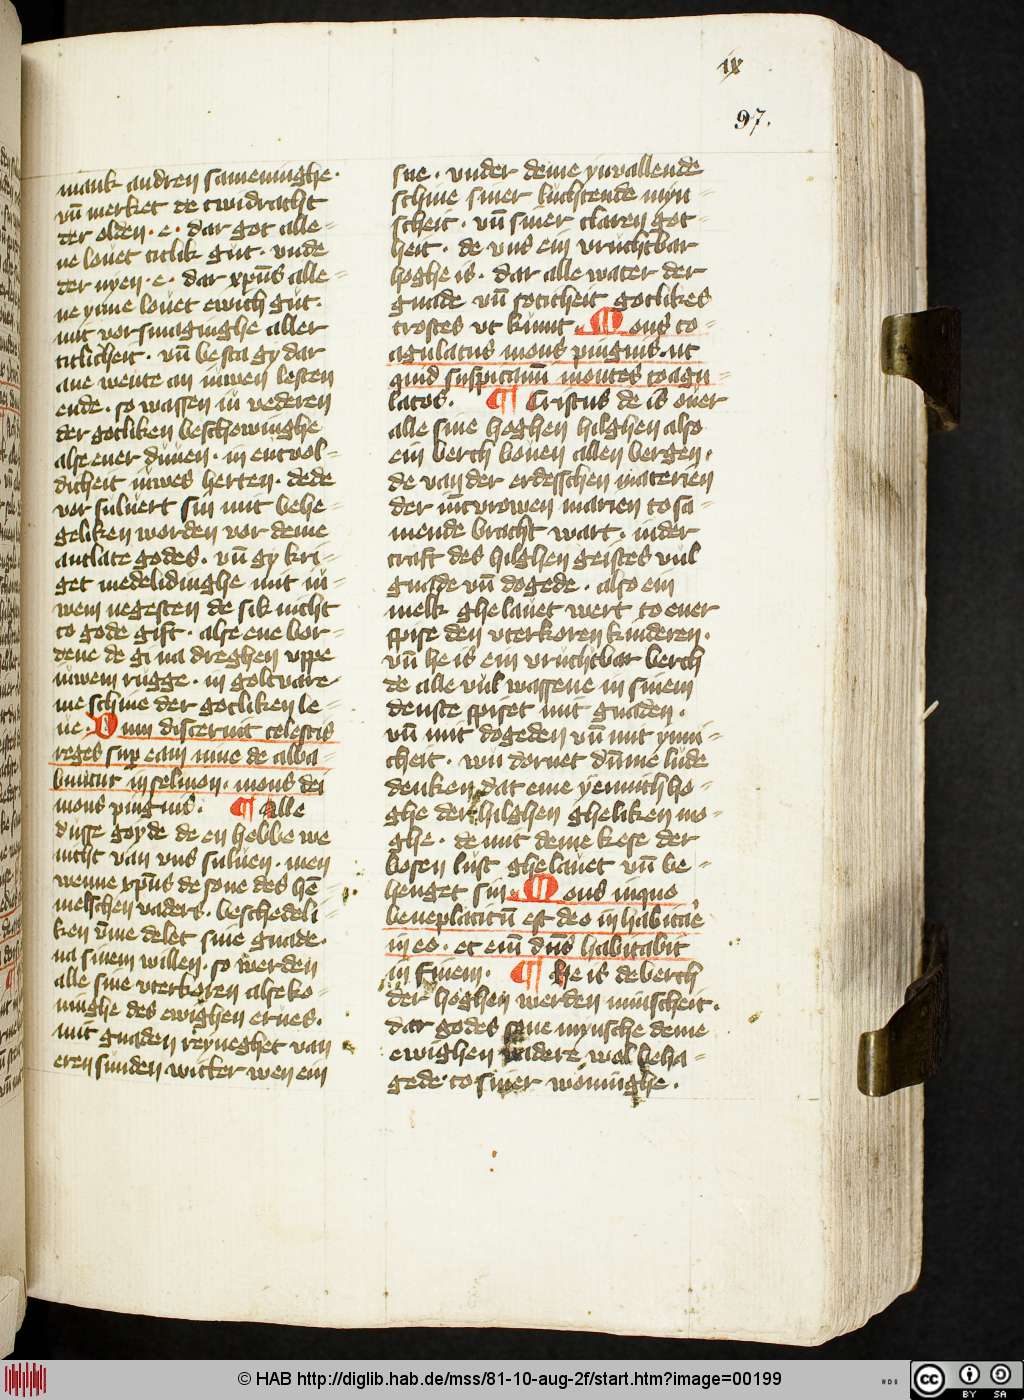 ix
97.
mank andren sameninghe·
vn̄ merket de twidracht
der olden· e· dar got alle-
ne louet titlik gut· vnde
der nyen· e· dar xpūs alle-
ne ynne louet ewich gut·
mit vorsmaginghe aller
titlicheit· vn̄ besta gy dar
ane wente an iuwen lesten
ende· so wassen iu vederen
der gotliken beschowinghe
alse ener duuen· in entvol-
dicheit iuwes herten· dede
vor suluert sin mit behe-
geliken worden vor deme
antlate godes· vn̄ gy kri-
get medelidinghe mit iu-
wem negesten de sik nicht
to gode gift· alse ene bor-
dene de gi na dreghen vppe
iuwem rugge· in goltvare
me schine der gotliken le-
ue· Dum discernit celestis
reges sup eam niue de alba-
buntur in selmon· mons dei
mons pinguis· ¶ Alle
dusse goyde de en hebbe we
nicht van vns suluen· men
wenne xpūs de sone des hē-
melschen vaders· beschedeli-
ken v̄me delet sine gnade·
na sinem willen· so werden
alle sine vterkoren alse ko-
ninghe des ewighen erues·
mit gnaden reyneghet van
eren sunden witker wen ein
sne· vnder deme ynvallende
schine siner luchtende myn-
scheit· vn̄ siner claren got-
heit· de vns ein vruchtbar
hoghe is· dar alle water der
gnade vn̄ soticheit gotlikes
trostes vt kumt· Mons co-
agulatus mons pinguis· ut
quid suspicamī montes coagu-
latos· ¶ Cristus de is ouer
alle sine hoghen hilghen also
ein berch bouen allen bergen·
de van der erdesschen materien
der iūcvrowen marien to sa-
mende bracht wart· in der
craft des hilghen geistes vul
gnade vn̄ dogede· also ein
melk ghelauet wert to ener
spise den vterkoren kinderen·
vn̄ he is ein vruchtbar berch
de alle vul wassene in sinem
denste spiset mit gnaden·
vn̄ mit dogeden vn̄ mit ynni-
cheit· wu dornet dūme lude
denken dat eme yemnich ho-
ghe der hilghen gheliken mo-
ghe· de mit deme kese der
bosen lust ghelauet vn̄ be-
henget sin· Mons in quo
beneplacitū est deo in habitare
in eo· et eim̄ dn̄s habitabit
in finem· ¶ He is de berch
der hoghen werden minscheit·
dar godes sone mynsche deme
ewighen vadere wol beha-
gede to siner woninghe·
© HAB http://diglib.hab.de/mss/81-10-aug-2f/start.htm?image=00199
cc BY SA